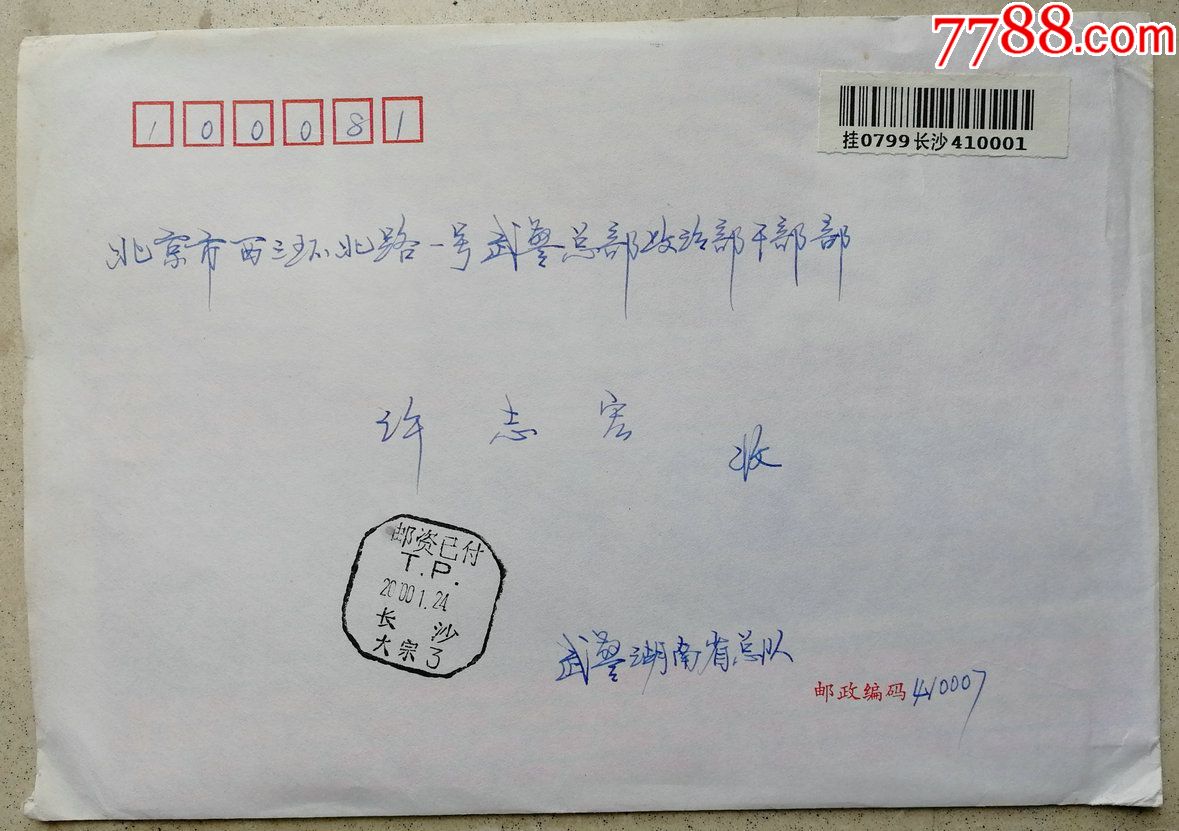 7788.com
100081
挂0799长沙410001
北京市西三环北路一号武警总部政治部干部部
许志宏 收
邮资已付
T.P.
2000.1.24
长沙
大宗3
武警湖南省总队
邮政编码410007